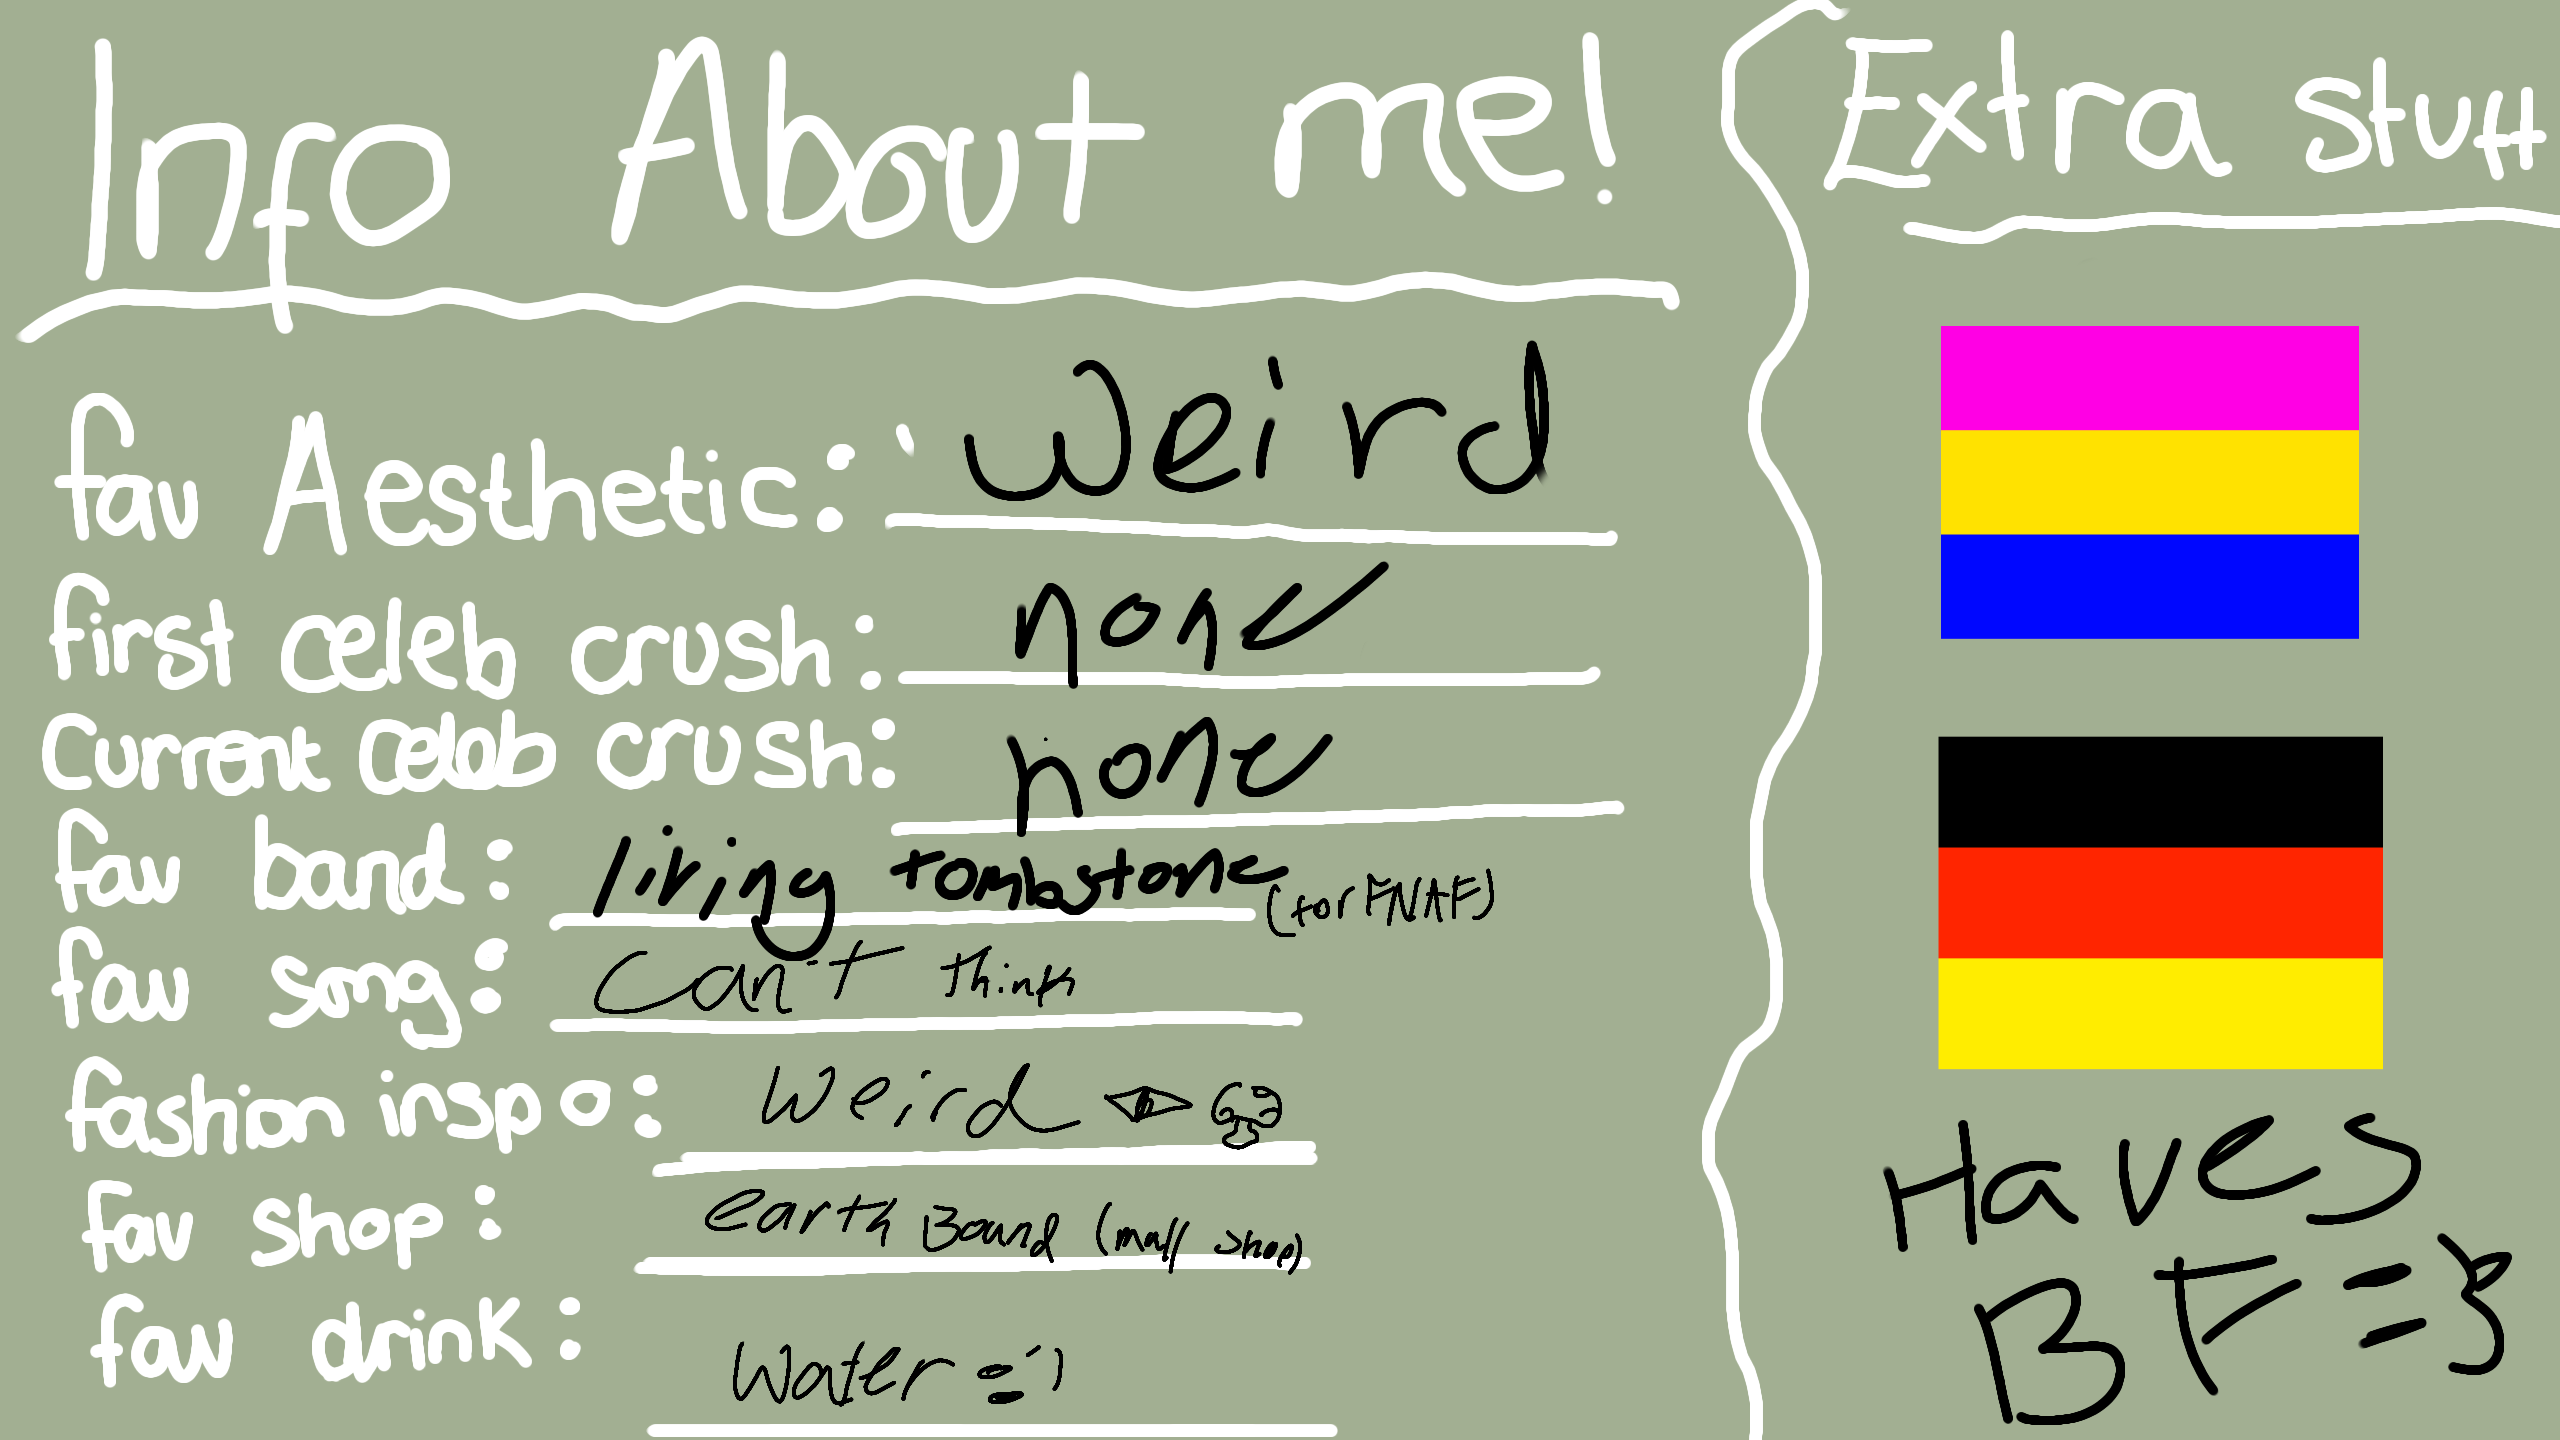 Info About me!
fav Aesthetic: weird
first celeb crush: none
Current celeb crush: none
fav band: living tombstone (for FNAF)
fav song: can't think
fashion inspo: weird
fav shop: earth Bound (mall shop)
fav drink: water =')
Extra stuff
Haves
BF =3